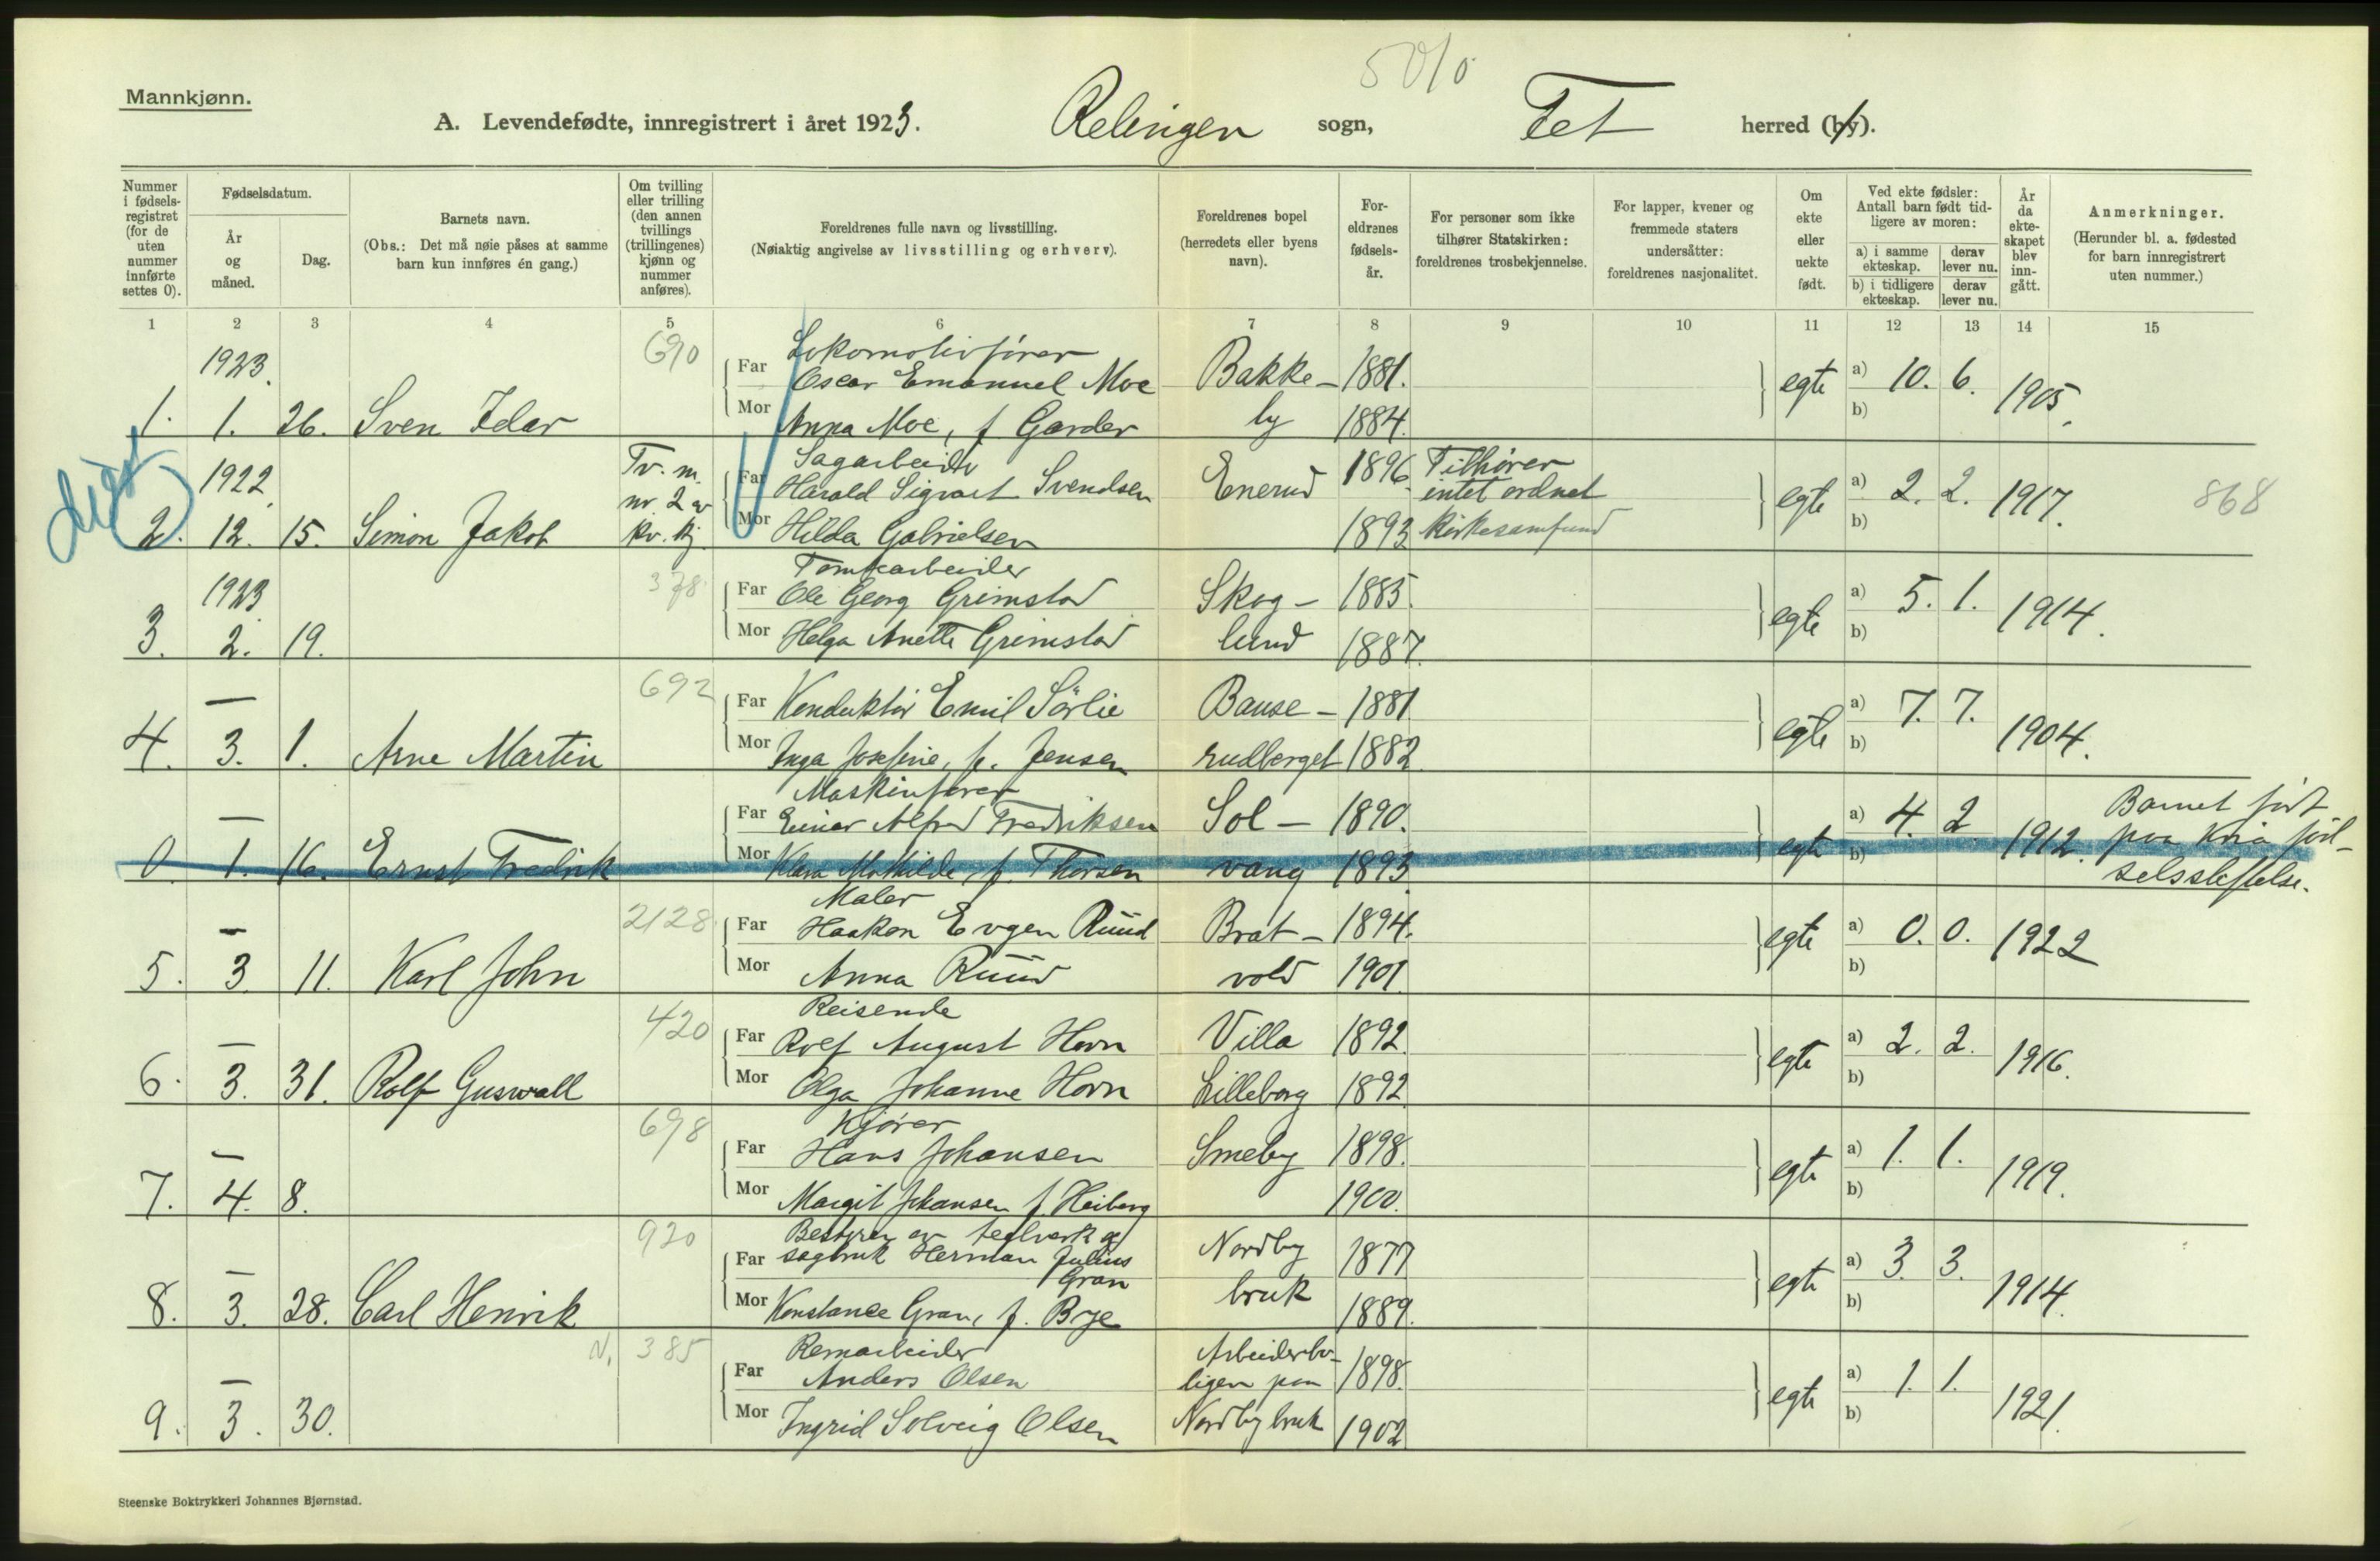 5010
Mannkjønn.
A. Levendefødte, innregistrert i året 1923. Relingen sogn, Fet herred (by).
Nummer i fødsels-registret (for de uten nummer innførte settes 0).
Fødselsdatum.
År og måned.
Dag.
Barnets navn.
(Obs.: Det må nøie påses at samme barn kun innføres én gang.)
Om tvilling eller trilling (den annen tvillings (trillingenes) kjønn og nummer anføres).
Foreldrenes fulle navn og livsstilling.
(Nøiaktig angivelse av livsstilling og erhverv).
Foreldrenes bopel (herredets eller byens navn).
For-eldrenes fødsels-år.
For personer som ikke tilhører Statskirken: foreldrenes trosbekjennelse.
For lapper, kvener og fremmede staters undersåtter: foreldrenes nasjonalitet.
Om ekte eller uekte født.
Ved ekte fødsler: Antall barn født tid-ligere av moren:
a) i samme ekteskap. derav lever nu.
b) i tidligere ekteskap. derav lever nu.
År da ekte-skapet blev inn-gått.
Anmerkninger.
(Herunder bl. a. fødested for barn innregistrert uten nummer.)
1 2 3 4 5 6 7 8 9 10 11 12 13 14 15
1923. 690 Lokomotivfører
Far Oscar Emanuel Moe Bakke- 1881. egte a) 10. 6. 1905.
1. 1. 26. Sven Idar Mor Anna Moe, f. Garder by 1884. b)
1922. Tv. m. Sagarbeider
Far Harald Sigvart Svendsen Enerud 1896. Tilhører intet ordnet egte a) 2. 2. 1917. 868
nr. 2 av
2. 12. 15. Simon Jakob kv. kj. Mor Hilda Gabrielsen 1893 kirkesamfund b)
1923 378 Tomtearbeider
Far Ole Georg Grimstad Skog- 1885. egte a) 5. 1. 1914.
3. 2. 19. Mor Helga Anette Grimstad lund 1887. b)
— 692 Far Konduktør Emil Sörlie Bause- 1881 egte a) 7. 7. 1904.
4. 3. 1. Arne Martin Mor Inga Josefine, f. Jensen rudberget 1882 b)
Maskinfører
— Far Einar Alfred Fredriksen Sol- 1890. egte a) 4. 2. 1912. Barnet født
0. 1. 16. Ernst Fredrik Mor Klara Mathilde, f. Thorsen vang 1893. b) paa Kria fød-
selsstiftelse.
Maler
— 2128 Far Haakon Evgen Ruud Brat- 1894. egte a) 0. 0. 1922
5. 3. 11. Karl John Mor Anna Ruud vold 1901. b)
Reisende
— 420 Far Rolf August Horn Villa 1892. egte a) 2. 2. 1916.
6. 3. 31. Rolf Guswall Mor Olga Johanne Horn Lilleborg 1892. b)
Kjører
— 698 Far Hans Johansen Smeby 1898. egte a) 1. 1. 1919.
7. 4. 8. Mor Margit Johansen f. Heiberg 1900. b)
Bestyrer av teglverk og
— 920 Far sagbruk Herman Julius Gran Nordby 1877 egte a) 3. 3. 1914.
8. 3. 28. Carl Henrik Mor Konstance Gran, f. Bye bruk 1889. b)
N. 385 Remarbeider Arbeiderbo-
— Far Anders Olsen ligen paa 1898. egte a) 1. 1. 1921.
9. 3. 30. Mor Ingrid Solveig Olsen Nordby bruk 1902 b)
Steenske Boktrykkeri Johannes Bjørnstad.